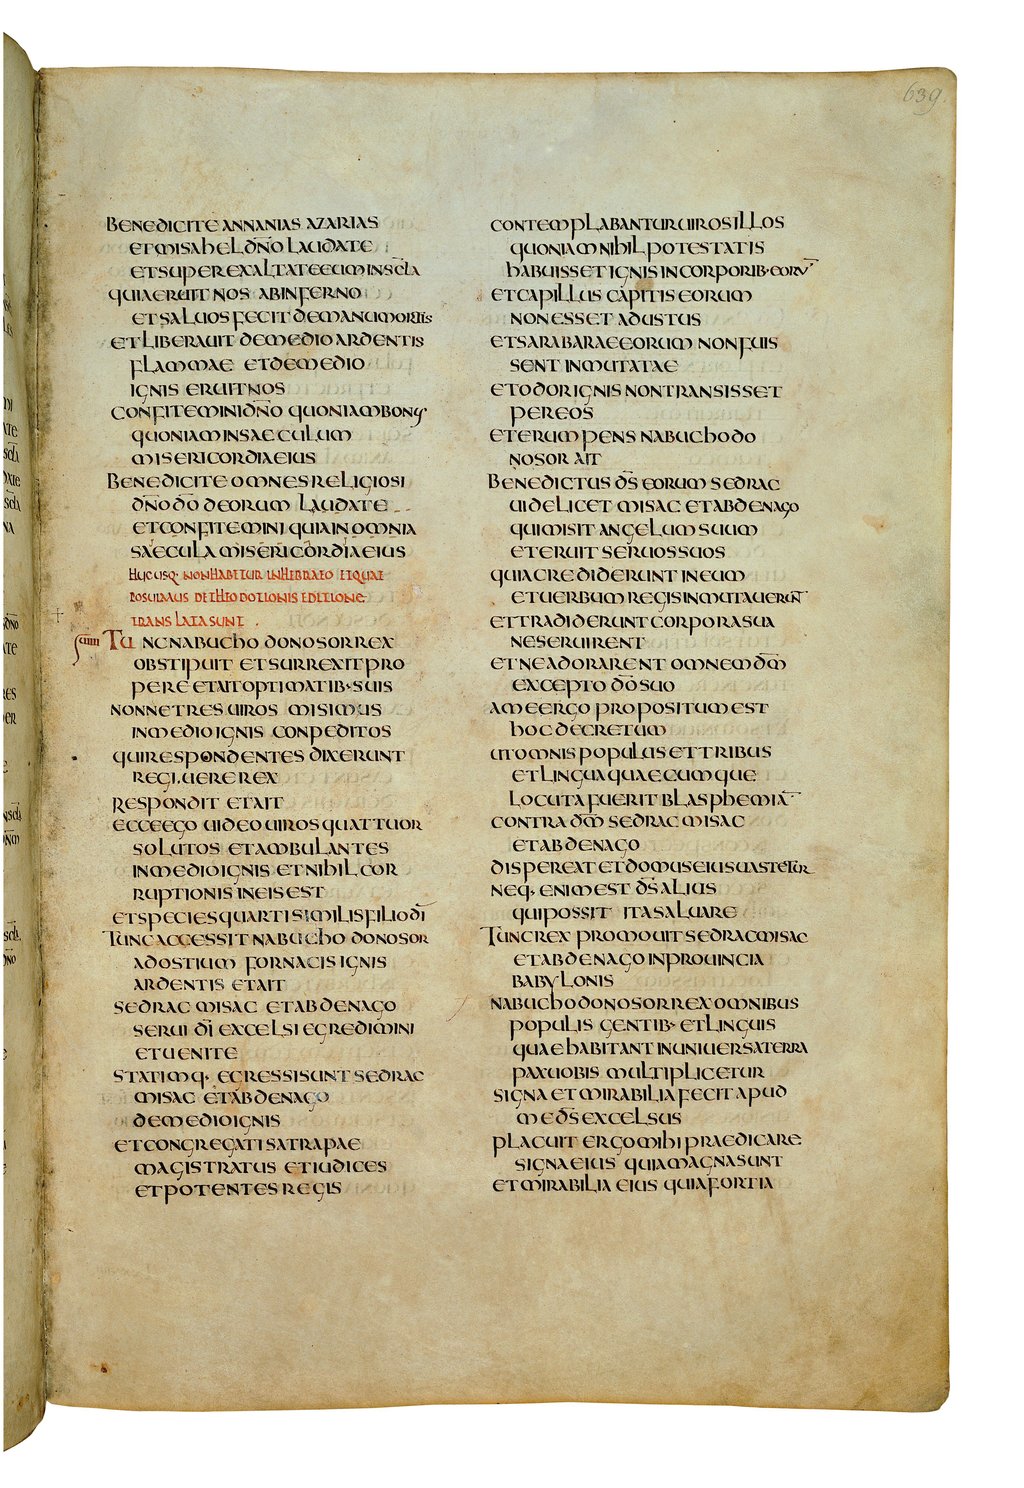 639.
BENEDICITE ANNANIAS AZARIAS
ET MISAHEL DN̄O LAUDATE
ET SUPEREXALTATE EUM IN SCLA
QUIA ERUIT NOS AB INFERNO
ET SALUOS FECIT DE MANU MORTIS
ET LIBERAUIT DE MEDIO ARDENTIS
FLAMMAE ET DE MEDIO
IGNIS ERUIT NOS
CONFITEMINI DN̄O QUONIAM BONUS
QUONIAM IN SAECULUM
MISERICORDIA EIUS
BENEDICITE OMNES RELIGIOSI
DN̄O DŌ DEORUM LAUDATE
ET CONFITEMINI QUIA IN OMNIA
SAECULA MISERICORDIA EIUS
HUCUSQ· NON HABETUR IN HEBRAEO ET QUAE
POSUIMUS DE THEODOTIONIS EDITIONE
TRANSLATA SUNT .
TUNC NABUCHODONOSOR REX
OBSTIPUIT ET SURREXIT PRO
PERE ET AIT OPTIMATIB· SUIS
NONNE TRES UIROS MISIMUS
IN MEDIO IGNIS CONPEDITOS
QUI RESPONDENTES DIXERUNT
REGI, UERE REX
RESPONDIT ET AIT
ECCE EGO UIDEO UIROS QUATTUOR
SOLUTOS ET AMBULANTES
IN MEDIO IGNIS ET NIHIL COR
RUPTIONIS IN EIS EST
ET SPECIES QUARTI SIMILIS FILIO DĪ
TUNC ACCESSIT NABUCHODONOSOR
AD OSTIUM FORNACIS IGNIS
ARDENTIS ET AIT
SEDRAC MISAC ET ABDENAGO
SERUI DĪ EXCELSI EGREDIMINI
ET UENITE
STATIMQ· EGRESSI SUNT SEDRAC
MISAC ET ABDENAGO
DE MEDIO IGNIS
ET CONGREGATI SATRAPAE
MAGISTRATUS ET IUDICES
ET POTENTES REGIS
CONTEMPLABANTUR UIROS ILLOS
QUONIAM NIHIL POTESTATIS
HABUISSET IGNIS IN CORPORIB· EORŪ
ET CAPILLUS CAPITIS EORUM
NON ESSET ADUSTUS
ET SARABARAE EORUM NON FUIS
SENT INMUTATAE
ET ODOR IGNIS NON TRANSISSET
PER EOS
ET ERUMPENS NABUCHODO
NOSOR AIT
BENEDICTUS DS̄ EORUM SEDRAC
UIDELICET MISAC ET ABDENAGO
QUI MISIT ANGELUM SUUM
ET ERUIT SERUOS SUOS
QUIA CREDIDERUNT IN EUM
ET UERBUM REGIS INMUTAUERUNT
ET TRADIDERUNT CORPORA SUA
NE SERUIRENT
ET NE ADORARENT OMNEM DM̄
EXCEPTO DŌ SUO
A ME ERGO PROPOSITUM EST
HOC DECRETUM
UT OMNIS POPULUS ET TRIBUS
ET LINGUA QUAECUMQUE
LOCUTA FUERIT BLASPHEMIĀ
CONTRA DM̄ SEDRAC MISAC
ET ABDENAGO
DISPEREAT ET DOMUS EIUS UASTETUR
NEQ· ENIM EST DS̄ ALIUS
QUI POSSIT ITA SALUARE
TUNC REX PROMOUIT SEDRAC MISAC
ET ABDENAGO IN PROUINCIA
BABYLONIS
NABUCHODONOSOR REX OMNIBUS
POPULIS GENTIB· ET LINGUIS
QUAE HABITANT IN UNIUERSA TERRA
PAX UOBIS MULTIPLICETUR
SIGNA ET MIRABILIA FECIT APUD
ME DS̄ EXCELSUS
PLACUIT ERGO MIHI PRAEDICARE
SIGNA EIUS QUIA MAGNA SUNT
ET MIRABILIA EIUS QUIA FORTIA